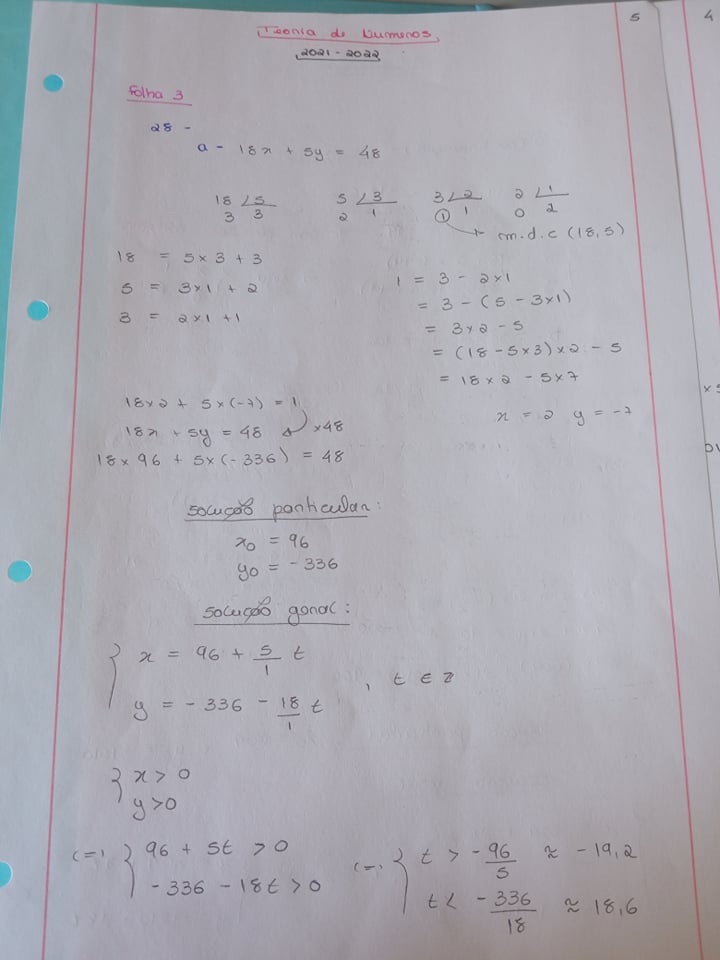 5
4
Teoria de Números
2021 - 2022
Folha 3
28 -
a - 18x + 5y = 48
18 ∠ 5   5 ∠ 3   3 ∠ 2   2 ∠ 1
3 3   2 1   1 1   0 2
m.d.c (18,5)
18 = 5x3 + 3
5 = 3x1 + 2
3 = 2x1 + 1
1 = 3 - 2x1
= 3 - (5 - 3x1)
= 3x2 - 5
= (18 - 5x3) x2 - 5
= 18x2 - 5x7
x = 2 y = -7
18x2 + 5x(-7) = 1
18x + 5y = 48 x48
18x 96 + 5x(-336) = 48
solução particular:
x0 = 96
y0 = -336
solução geral:
{ x = 96 + 5/1 t
y = -336 - 18/1 t , t ∈ Z
{ x > 0
y > 0
(=) { 96 + 5t > 0
-336 - 18t > 0
(=) { t > -96/5 ≈ -19,2
t < -336/18 ≈ 18,6